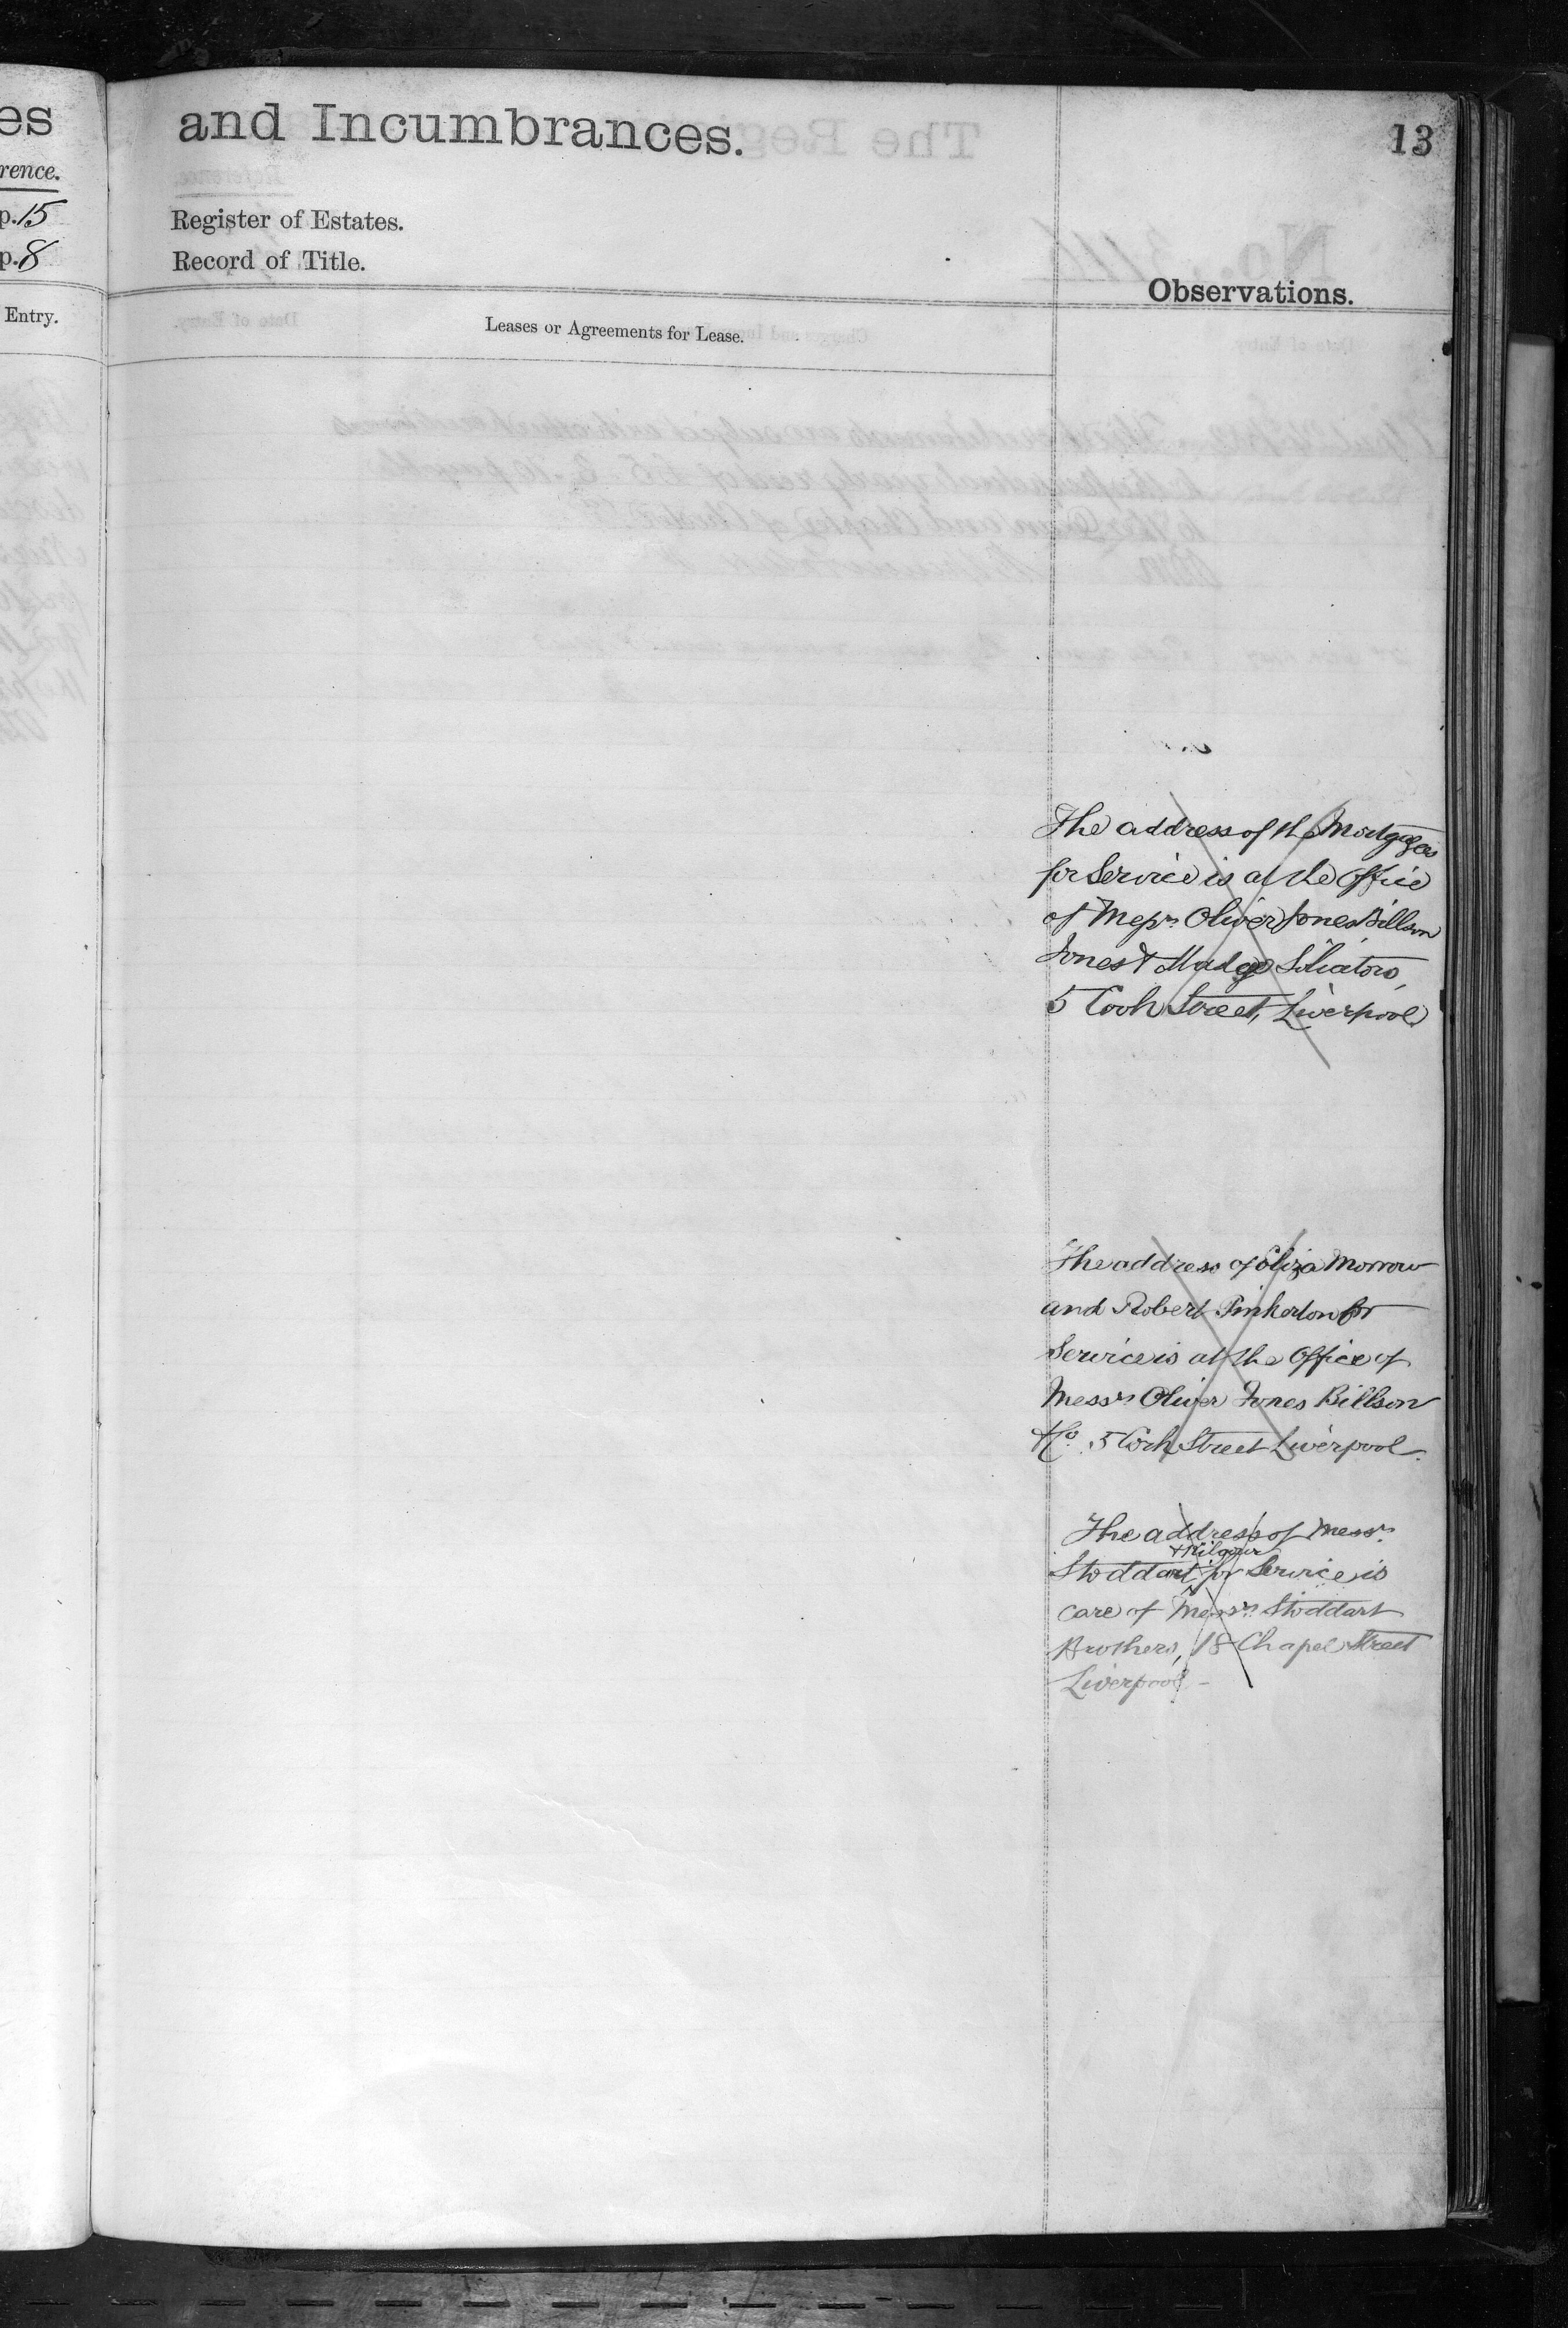 es
and Incumbrances.
13
rence.
p. 15
Register of Estates.
p. 8
Record of Title.
Observations.
Entry.
Leases or Agreements for Lease.
The address of the Mortgagees
for Service is at the Office
of Messrs Oliver Jones Billson
Jones & Madge Solicitors,
5 Cook Street, Liverpool
The address of Eliza Morrow
and Robert Pinkerton for
Service is at the Office of
Messrs Oliver Jones Billson
&Co. 5 Cook Street Liverpool.
The address of Messrs.
& Kilgour
Stoddart for Service is
care of Messrs. Stoddart
Brothers, 18 Chapel Street
Liverpool -